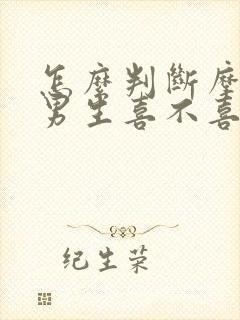 怎麼判斷
男生喜不喜
纪生荣